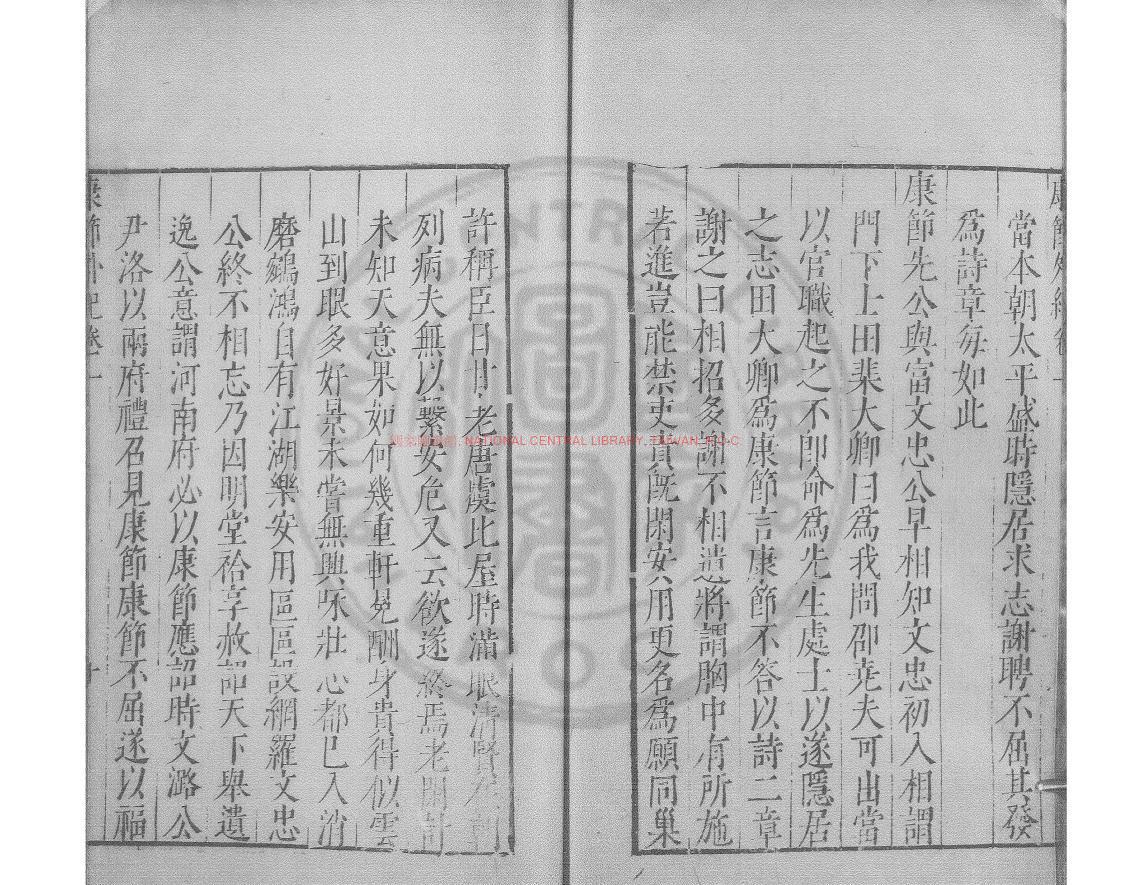 當本朝太平盛時隱居求志謝聘不屈其發
為詩章每如此
康節先公與富文忠公早相知文忠初入相謂
門下士田棐大卿曰為我問邵堯夫可出當
以官職起之不即命為先生處士以遂隱居
之志田大卿為康節言康節不答以詩二章
謝之曰相招多謝不相遺將謂胸中有所施
若進豈能禁吏責既閑安用更名為願同巢
許稱臣日甘老唐虞比屋時滿眼清賢在朝
列病夫無以繫安危又云欲遂終焉老閑計
未知天意果如何幾重軒冕酬身貴得似雲
山到眼多好景未嘗無興咏壯心都已入消
磨鵷鴻自有江湖樂安用區區設網羅文忠
公終不相忘乃因明堂祫享赦詔天下舉遺
逸公意謂河南府必以康節應詔時文潞公
尹洛以兩府禮召見康節康節不屈遂以福
康節外紀卷一
十
NATIONAL CENTRAL LIBRARY, TAIWAN, R.O.C